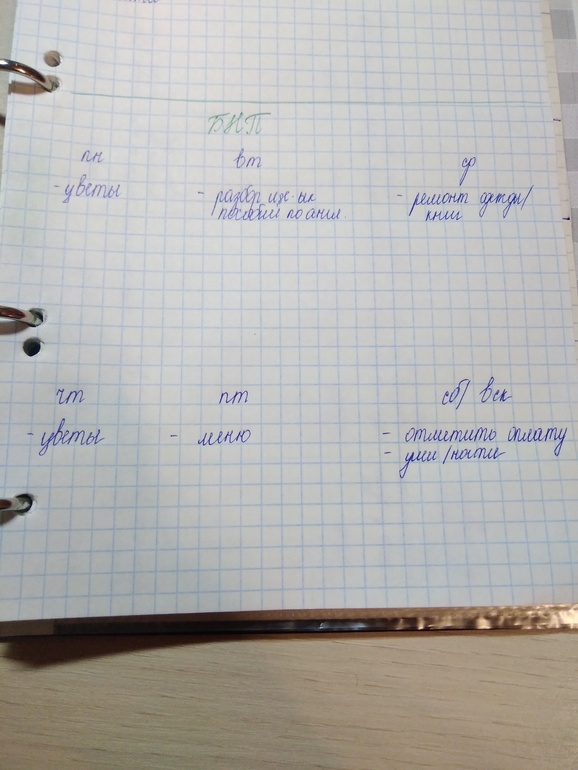 БНП
пн вт ср
- цветы - разбор - ремонт одежды/
пособий по англ. книг
чт пт сб/ вск
- цветы - меню - отметить оплату
- уши / ногти